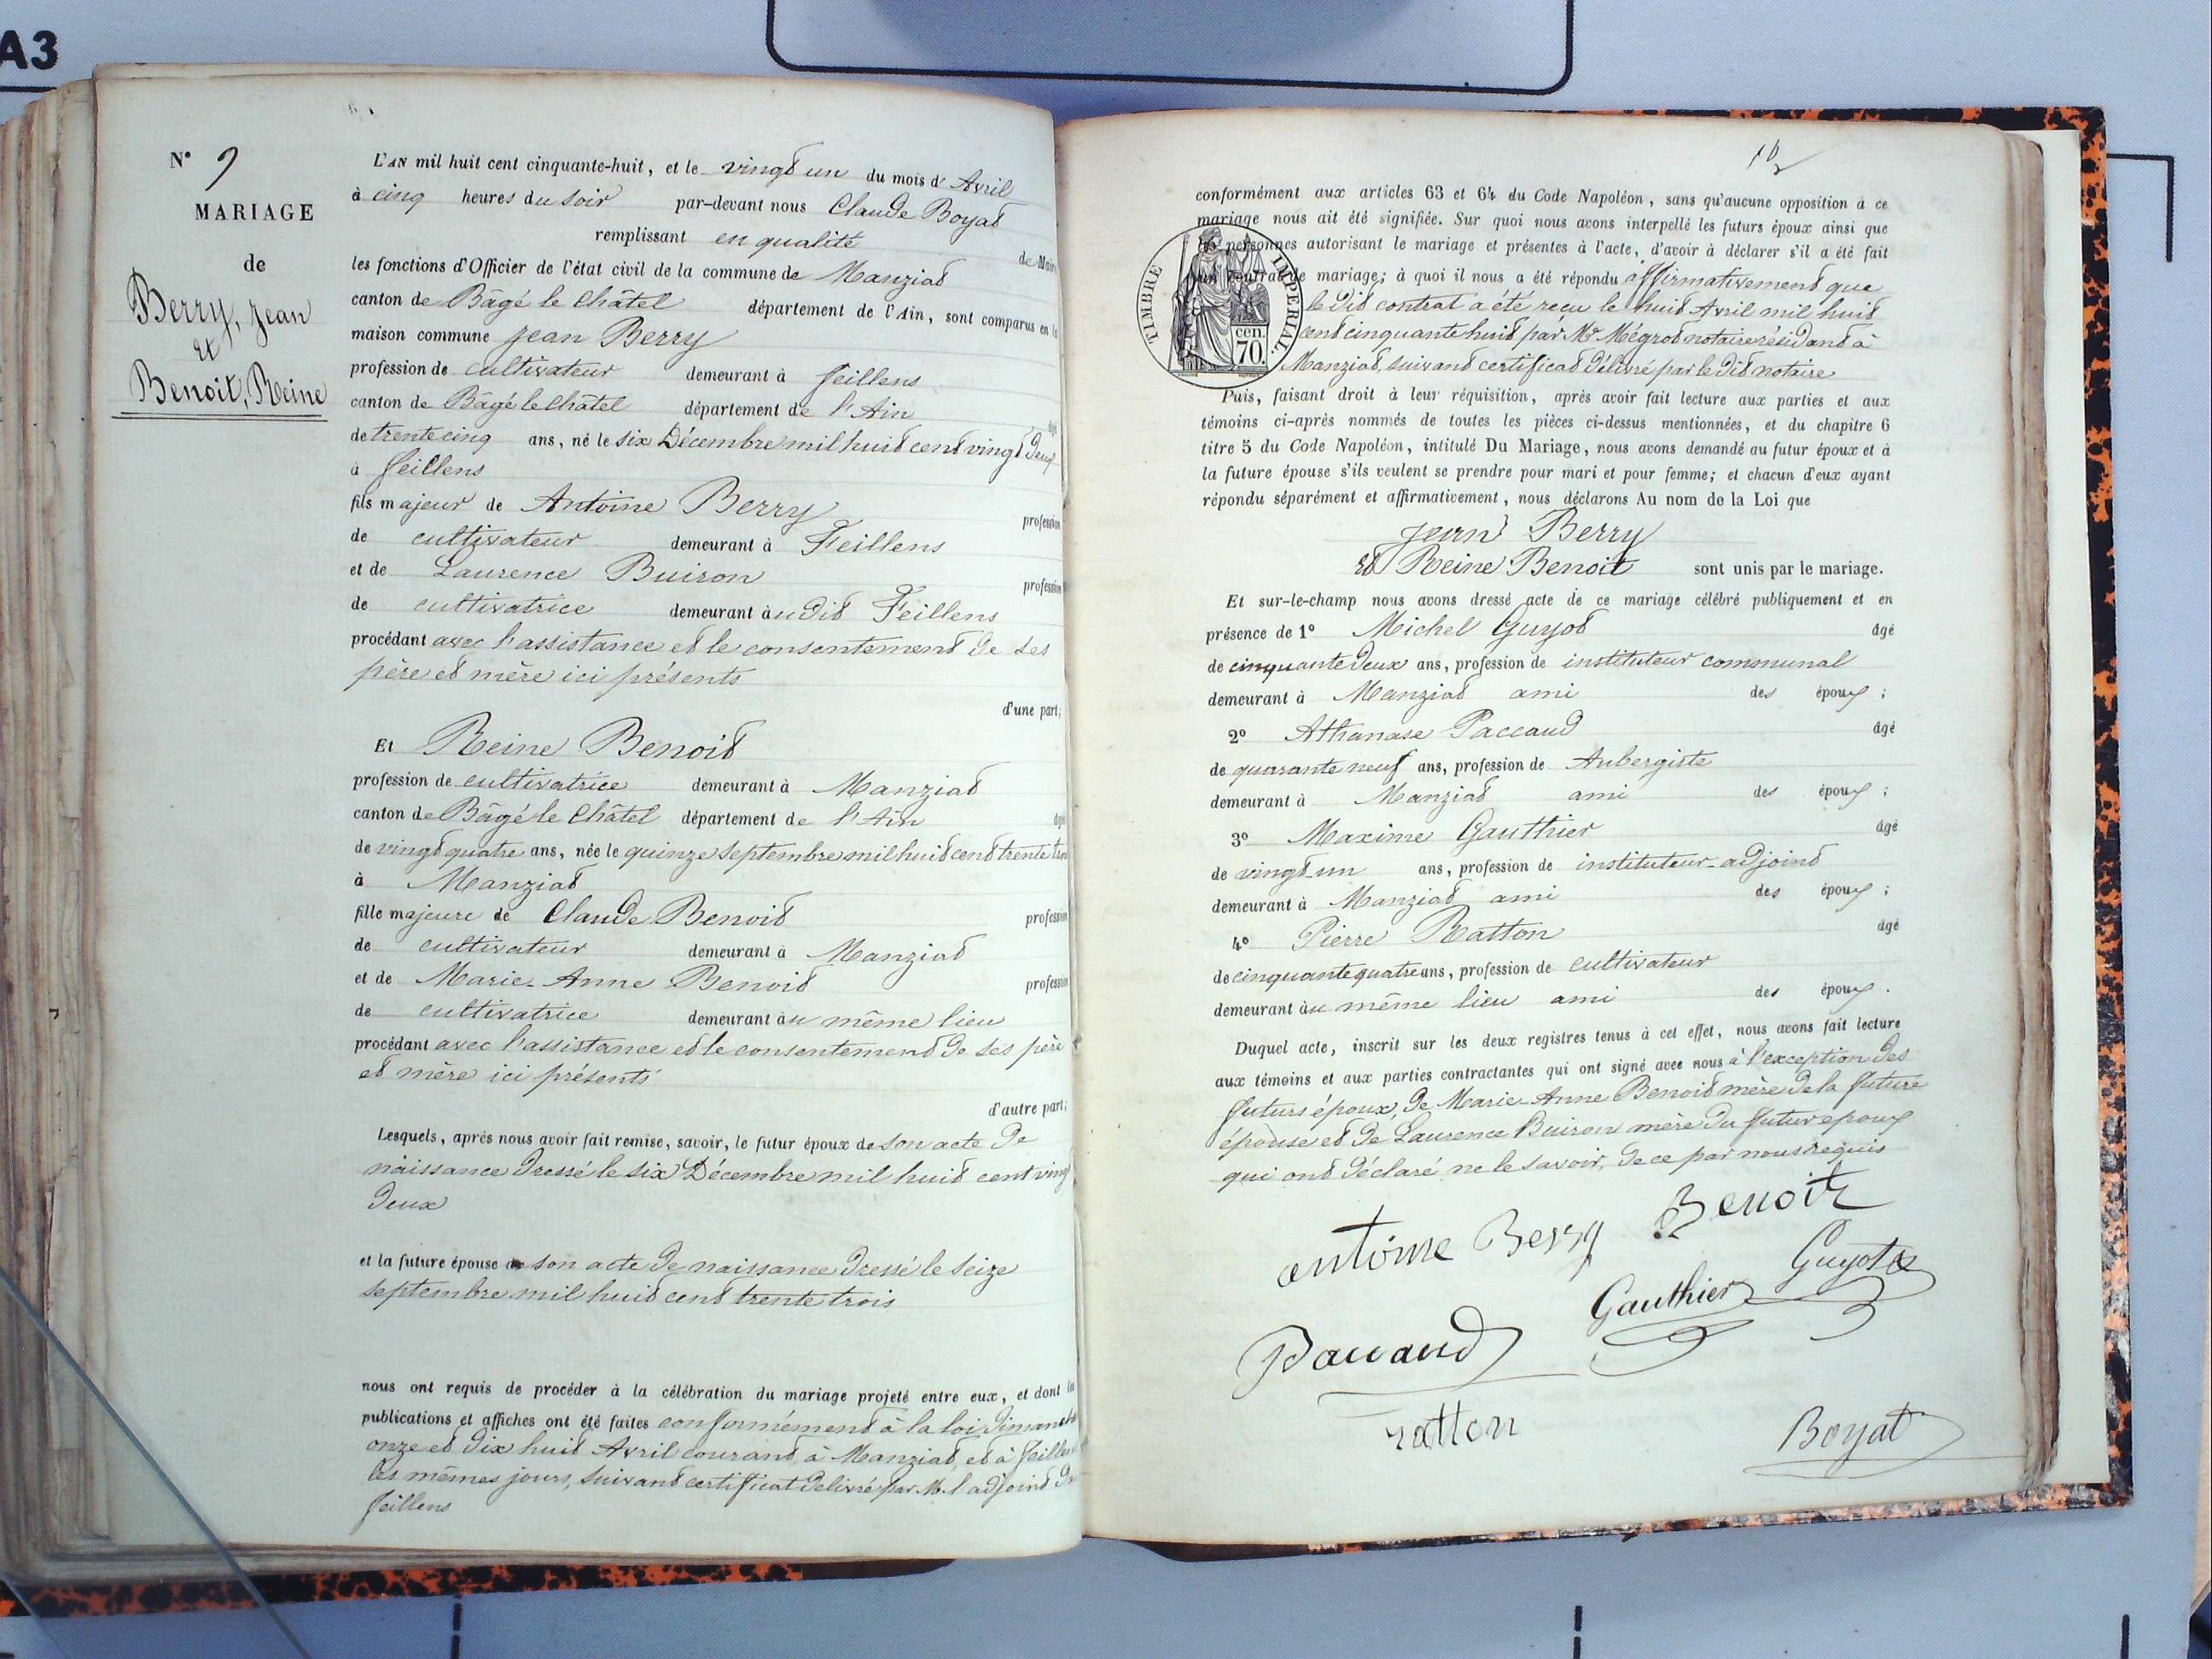 A3
N° 9
MARIAGE
de
Berry, Jean
et
Benoit, Reine
L'AN mil huit cent cinquante-huit, et le vingt un du mois d'Avril
à cinq heures du soir par-devant nous Claude Boyat
remplissant en qualité de Maire
les fonctions d'Officier de l'état civil de la commune de Manziat
canton de Bâgé le Châtel département de l'Ain, sont comparus en la
maison commune Jean Berry
profession de cultivateur demeurant à Feillens
canton de Bâgé le Châtel département de l'Ain âgé
de trente cinq ans, né le six Décembre mil huit cent vingt deux
à Feillens
fils majeur de Antoine Berry profession
de cultivateur demeurant à Feillens
et de Laurence Buiron profession
de cultivatrice demeurant àudit Feillens
procédant avec l'assistance et le consentement de ses
père et mère ici présents
d'une part;
Et Reine Benoit
profession de cultivatrice demeurant à Manziat
canton de Bâgé le Châtel département de l'Ain âgé
de vingt quatre ans, née le quinze septembre mil huit cent trente trois
à Manziat
fille majeure de Claude Benoit profession
de cultivateur demeurant à Manziat
et de Marie-Anne Benoit profession
de cultivatrice demeurant àu même lieu
procédant avec l'assistance et le consentement de ses père
et mère ici présents
d'autre part;
Lesquels, après nous avoir fait remise, savoir, le futur époux de son acte de
naissance dressé le six Décembre mil huit cent vingt
deux
et la future épouse de son acte de naissance dressé le seize
septembre mil huit cent trente trois
nous ont requis de procéder à la célébration du mariage projeté entre eux, et dont les
publications et affiches ont été faites conformément à la loi dimanche
onze et dix huit Avril courant, à Manziat, et à Feillens
les mêmes jours, suivant certificat délivré par M. l'adjoint de
Feillens
10
conformément aux articles 63 et 64 du Code Napoléon, sans qu'aucune opposition à ce
mariage nous ait été signifiée. Sur quoi nous avons interpellé les futurs époux ainsi que
les personnes autorisant le mariage et présentes à l'acte, d'avoir à déclarer s'il a été fait
un contrat de mariage; à quoi il nous a été répondu affirmativement que
le dit contrat a été reçu le huit Avril mil huit
cent cinquante huit par Mr Mégrot notaire résidant à
Manziat, suivant certificat délivré par le dit notaire
TIMBRE IMPERIAL
cen.
70.
Puis, faisant droit à leur réquisition, après avoir fait lecture aux parties et aux
témoins ci-après nommés de toutes les pièces ci-dessus mentionnées, et du chapitre 6
titre 5 du Code Napoléon, intitulé Du Mariage, nous avons demandé au futur époux et à
la future épouse s'ils veulent se prendre pour mari et pour femme; et chacun d'eux ayant
répondu séparément et affirmativement, nous déclarons Au nom de la Loi que
Jean Berry
et Reine Benoit sont unis par le mariage.
Et sur-le-champ nous avons dressé acte de ce mariage célébré publiquement et en
présence de 1° Michel Guyot âgé
de cinquante deux ans, profession de instituteur communal
demeurant à Manziat ami des époux ;
2° Athanase Paccaud âgé
de quarante neuf ans, profession de Aubergiste
demeurant à Manziat ami des époux ;
3° Maxime Gauthier âgé
de vingt-un ans, profession de instituteur-adjoint
demeurant à Manziat ami des époux ;
4° Pierre Ratton âgé
de cinquante quatre ans, profession de cultivateur
demeurant àu même lieu ami des époux .
Duquel acte, inscrit sur les deux registres tenus à cet effet, nous avons fait lecture
aux témoins et aux parties contractantes qui ont signé avec nous à l'exception des
futurs époux, de Marie-Anne Benoit mère de la future
épouse et de Laurence Buiron mère du futur epoux
qui ont déclaré ne le savoir, de ce par nous requis
antoine Berry Benoit
Gauthier Guyot
Paccaud
ratton
Boyat